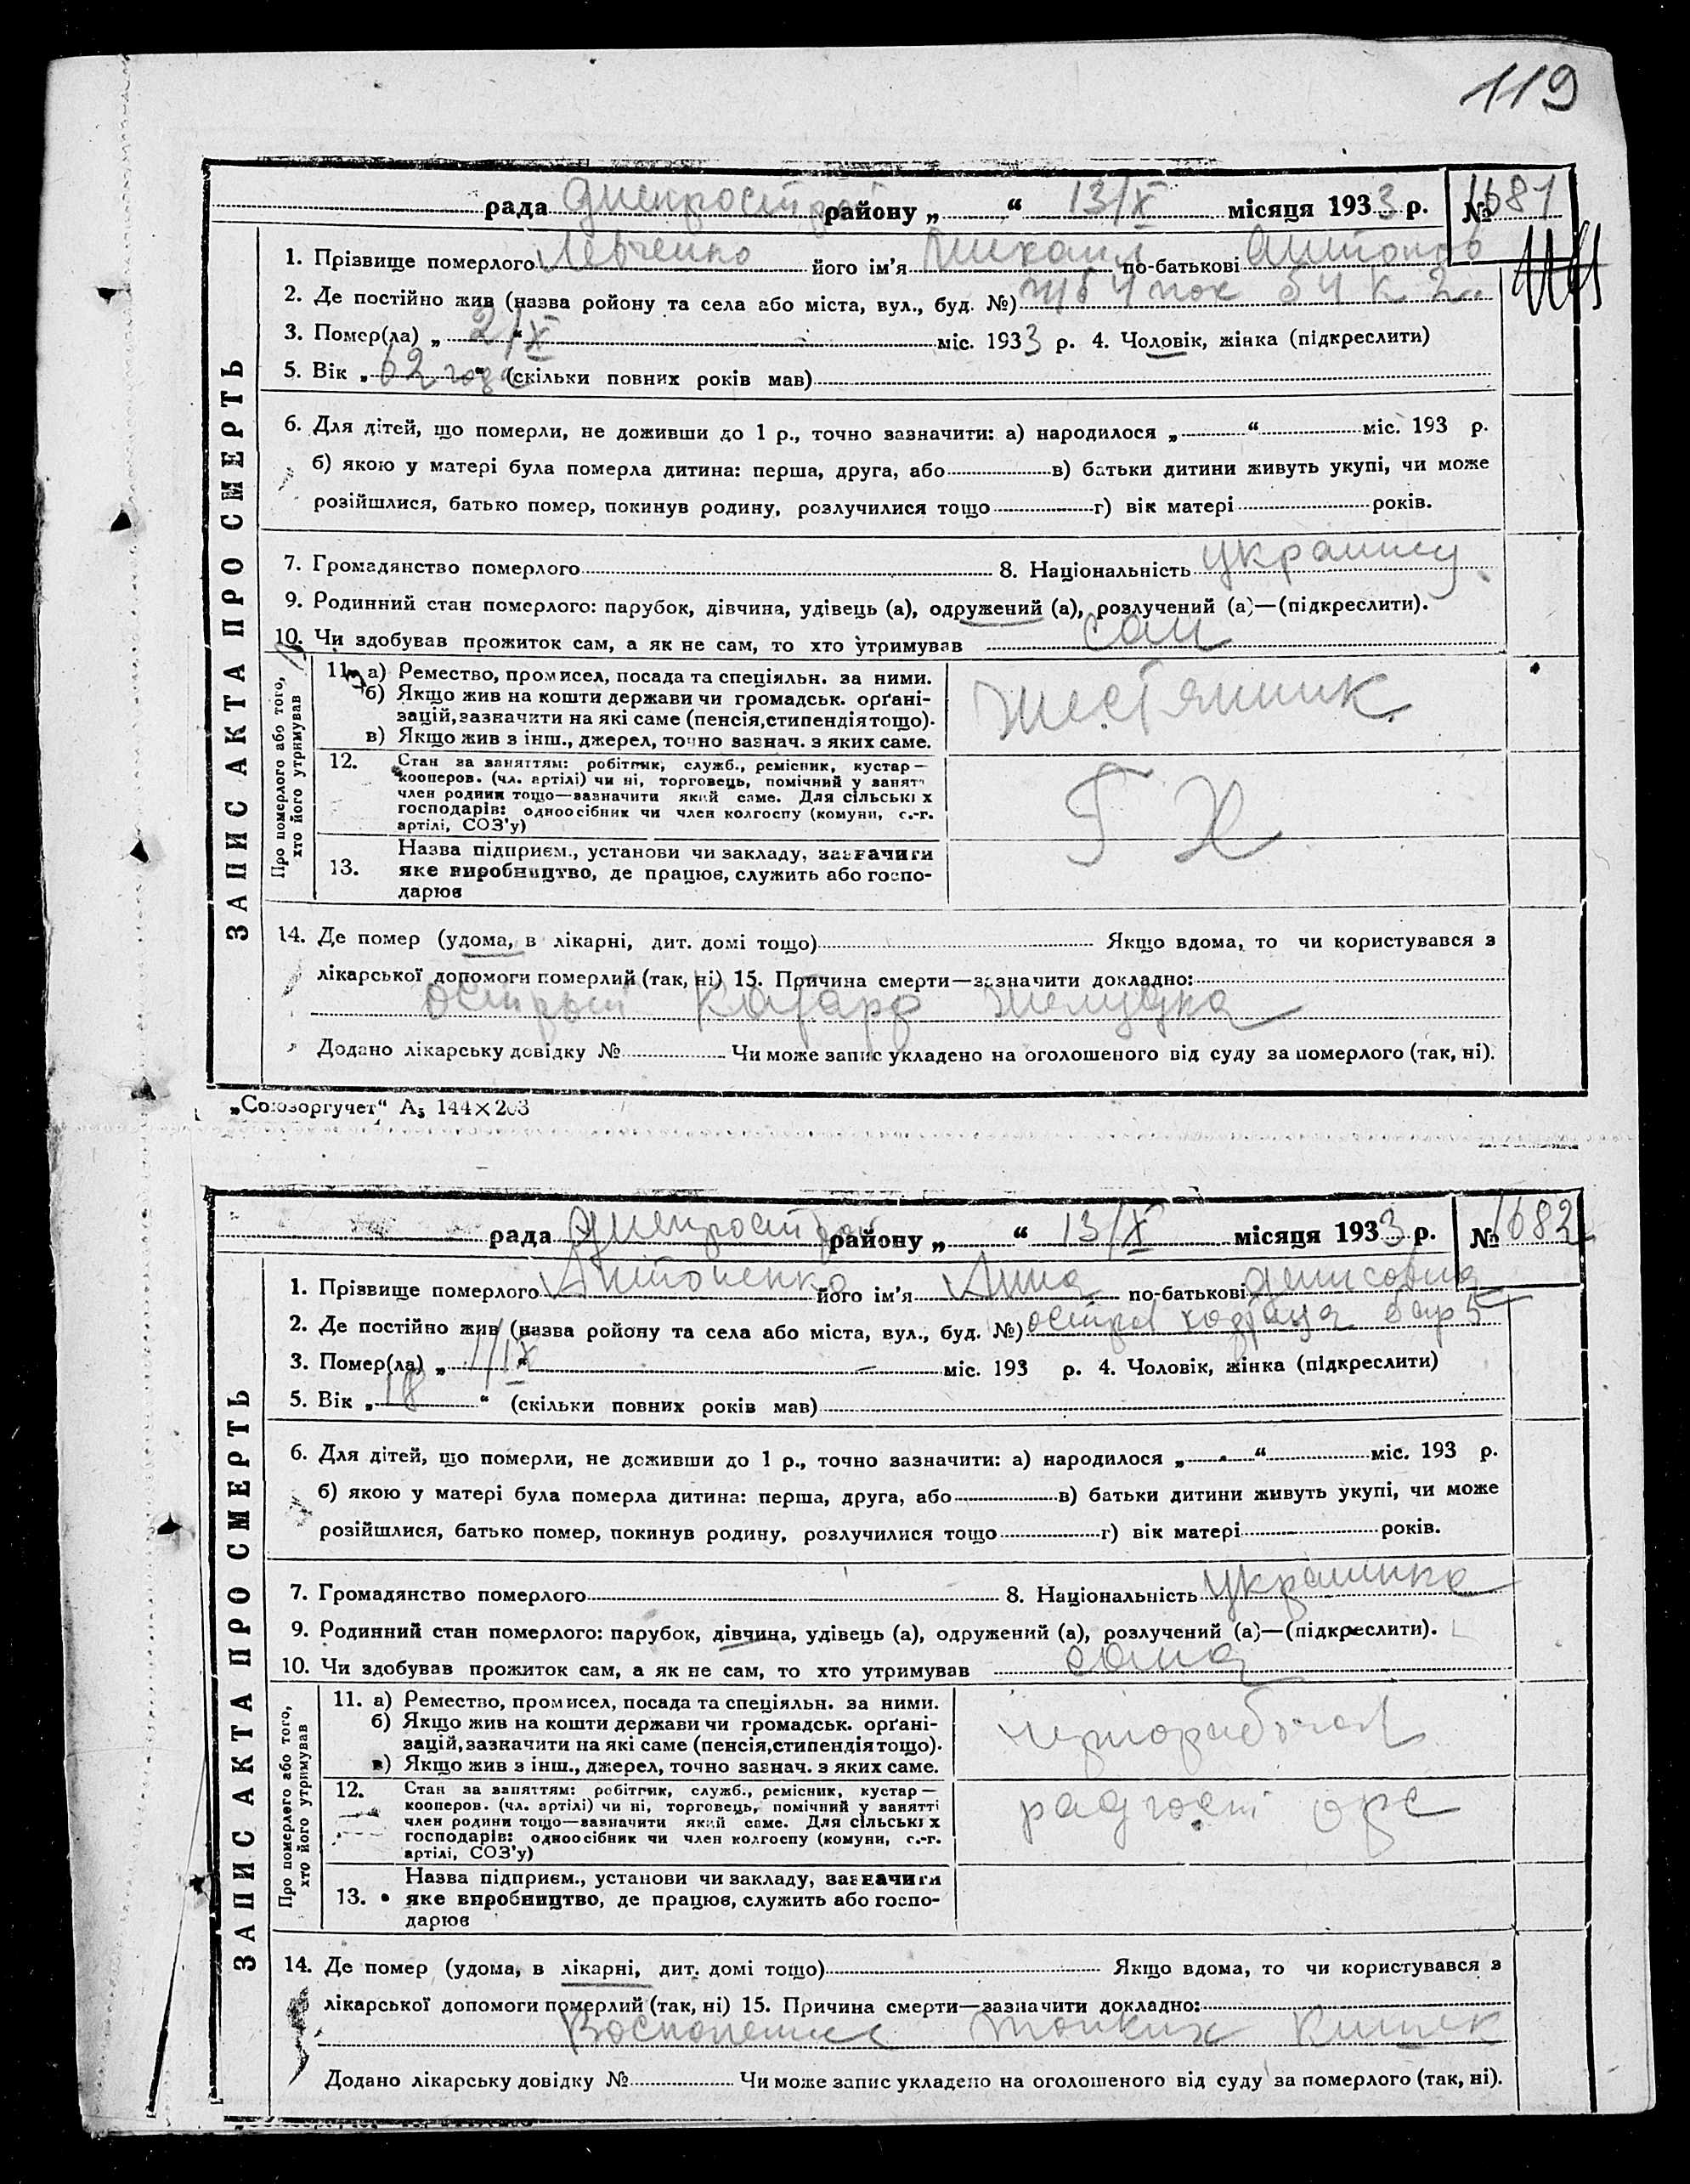 119
рада Днепрострой району „ “ 13/X місяця 1933 р. № 1681
1. Прізвище померлого Левченко його ім'я Михаил по-батькові Антонов
2. Де постійно жив (назва ройону та села або міста, вул., буд. №)
3. Помер(ла) „ 2/X “ міс. 1933 р. 4. Чоловік, жінка (підкреслити)
5. Вік „ 62 года “ (скільки повних років мав)
6. Для дітей, що померли, не доживши до 1 р., точно зазначити: а) народилося „ “ міс. 193 р.
б) якою у матері була померла дитина: перша, друга, або в) батьки дитини живуть укупі, чи може
розійшлися, батько помер, покинув родину, розлучилися тощо г) вік матері років.
7. Громадянство померлого 8. Національність украинец
9. Родинний стан померлого: парубок, дівчина, удівець (а), одружений (а), розлучений (а)—(підкреслити).
10. Чи здобував прожиток сам, а як не сам, то хто утримував сам
ЗАПИС АКТА ПРО СМЕРТЬ
Про померлого або того, хто його утримував
11. а) Ремество, промисел, посада та спеціяльн. за ними.
б) Якщо жив на кошти держави чи громадськ. орґані-
зацій, зазначити на які саме (пенсія, стипендія тощо).
в) Якщо жив з інш., джерел, точно зазнач. з яких саме.
Жестянник
12. Стан за заняттям: робітник, служб., ремісник, кустар—
кооперов. (чл. артілі) чи ні, торговець, помічний у занят
член родини тощо—зазначити який саме. Для сільських
господарів: одноосібник чи член колгоспу (комуни, с.-г.
артілі, СОЗ'у)
Г Х
13. Назва підприєм., установи чи закладу, зазначити
яке виробництво, де працює, служить або госпо-
дарює
14. Де помер (удома, в лікарні, дит. домі тощо) Якщо вдома, то чи користувався з
лікарської допомоги померлий (так, ні) 15. Причина смерти—зазначити докладно:
острый катарр желудка
Додано лікарську довідку № Чи може запис укладено на оголошеного від суду за померлого (так, ні).
„Союзоргучет“ А5 144×203
рада Днепрострой району „ “ 13/X місяця 1933 р. № 1682
1. Прізвище померлого Антоненко його ім'я Анна по-батькові Денисовна
2. Де постійно жив (назва ройону та села або міста, вул., буд. №) остров Хортица бар 5
3. Помер(ла) „ 11/X “ міс. 193 р. 4. Чоловік, жінка (підкреслити)
5. Вік „ 18 “ (скільки повних років мав)
6. Для дітей, що померли, не доживши до 1 р., точно зазначити: а) народилося „ “ міс. 193 р.
б) якою у матері була померла дитина: перша, друга, або в) батьки дитини живуть укупі, чи може
розійшлися, батько помер, покинув родину, розлучилися тощо г) вік матері років.
7. Громадянство померлого 8. Національність украинка
9. Родинний стан померлого: парубок, дівчина, удівець (а), одружений (а), розлучений (а)—(підкреслити).
10. Чи здобував прожиток сам, а як не сам, то хто утримував сама
ЗАПИС АКТА ПРО СМЕРТЬ
Про померлого або того, хто його утримував
11. а) Ремество, промисел, посада та спеціяльн. за ними.
б) Якщо жив на кошти держави чи громадськ. орґані-
зацій, зазначити на які саме (пенсія, стипендія тощо).
в) Якщо жив з інш., джерел, точно зазнач. з яких саме.
чернорабочая
12. Стан за заняттям: робітник, служб., ремісник, кустар—
кооперов. (чл. артілі) чи ні, торговець, помічний у занятті
член родини тощо—зазначити який саме. Для сільських
господарів: одноосібник чи член колгоспу (комуни, с.-г.
артілі, СОЗ'у)
радгосп орс
13. Назва підприєм., установи чи закладу, зазначити
яке виробництво, де працює, служить або госпо-
дарює
14. Де помер (удома, в лікарні, дит. домі тощо) Якщо вдома, то чи користувався з
лікарської допомоги померлий (так, ні) 15. Причина смерти—зазначити докладно:
Воспаление тонких кишек
Додано лікарську довідку № Чи може запис укладено на оголошеного від суду за померлого (так, ні).